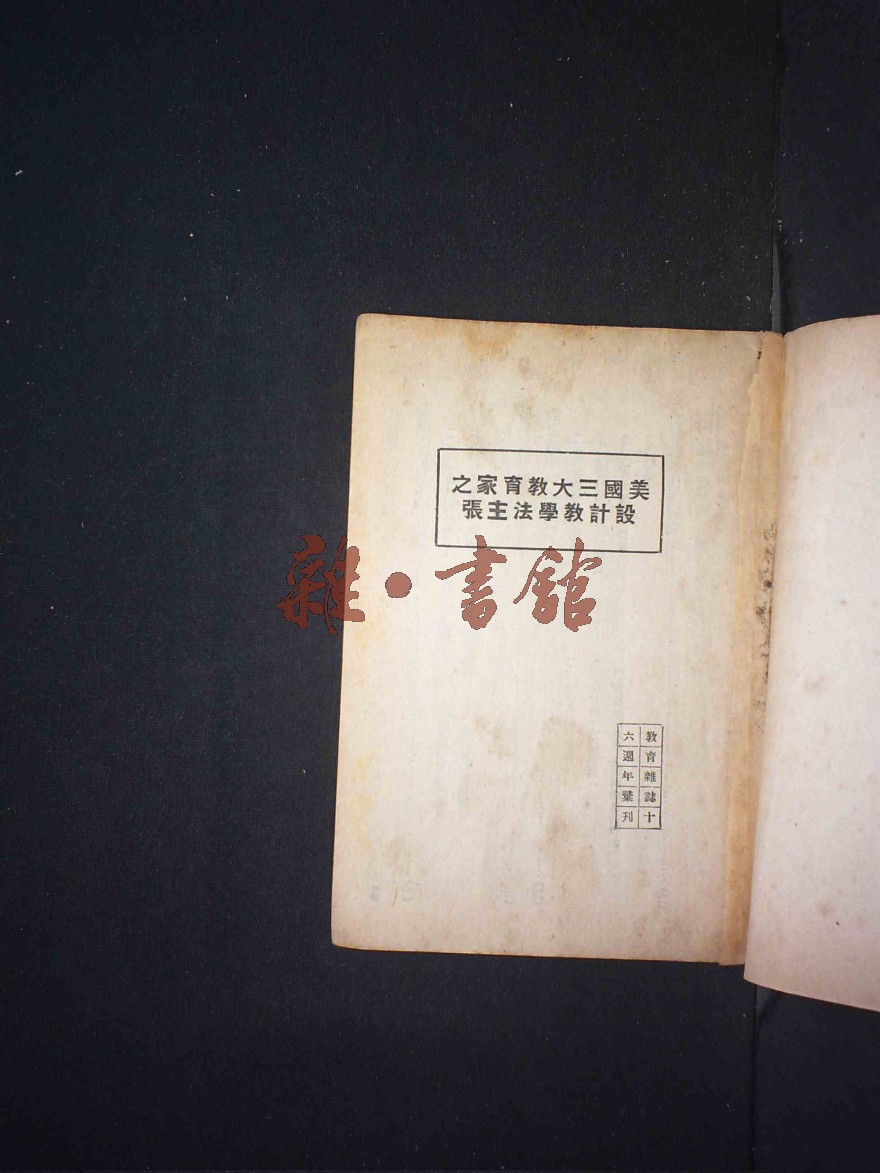 美國三大教育家之
設計教學法主張
雜·書館
教育雜誌十
六週年彙刊